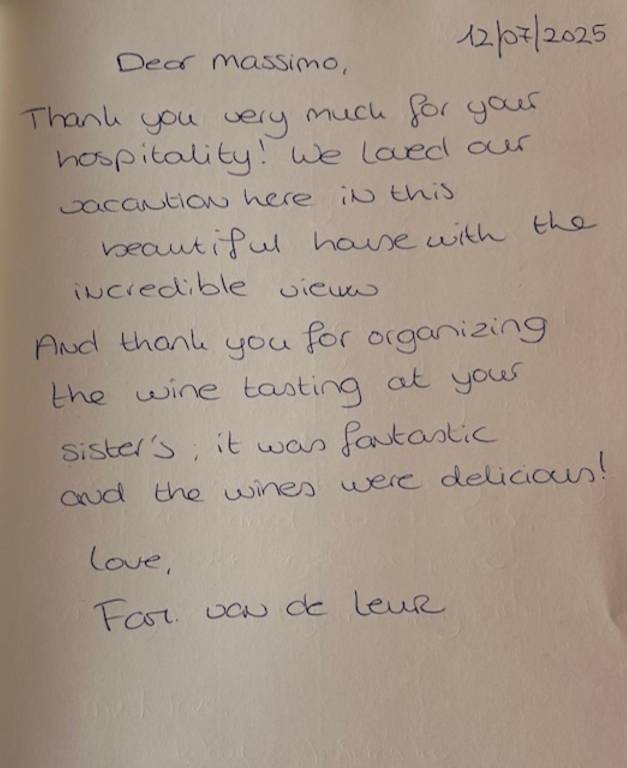 12/07/2025
Dear Massimo,
Thank you very much for your
hospitality! We loved our
vacantion here in this
beautiful house with the
incredible view
And thank you for organizing
the wine tasting at your
sister's; it was fantastic
and the wines were delicious!
Love,
Fam. van de Leur